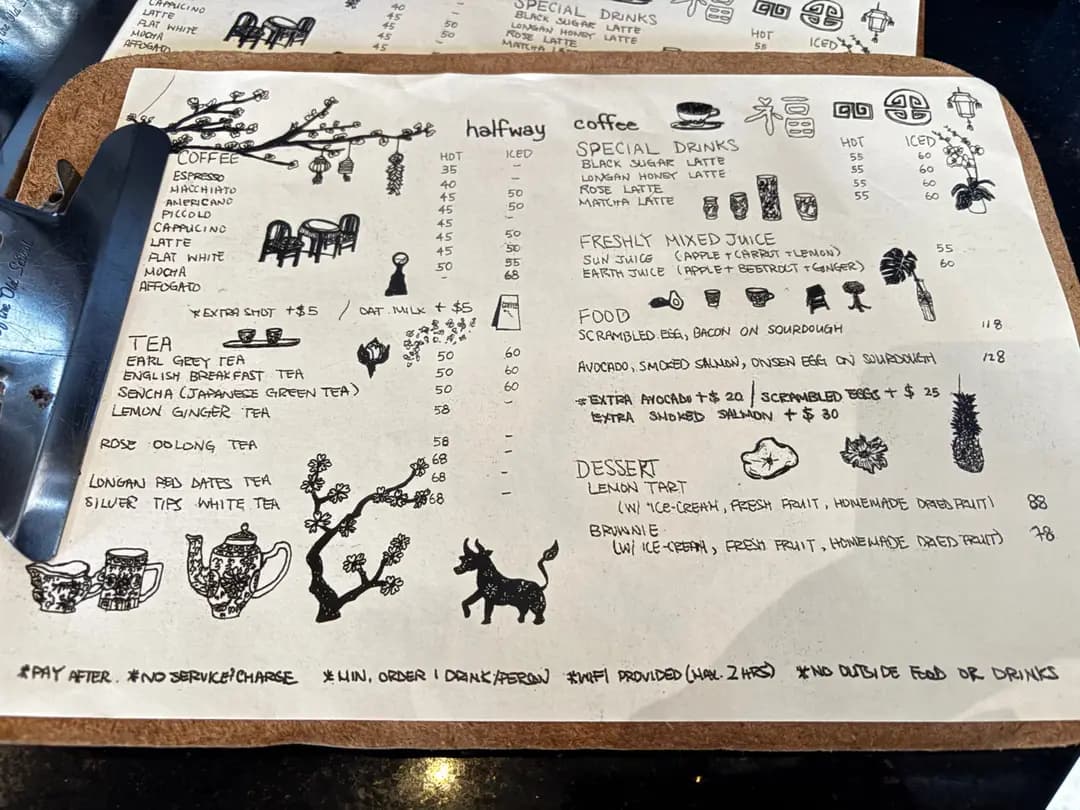 CAPPUCINO
LATTE
FLAT WHITE
MOCHA
AFFOGATO
40 -
45 50
45 50
45 -
SPECIAL DRINKS
BLACK SUGAR LATTE
LONGAN HONEY LATTE
ROSE LATTE
MATCHA LATTE
HOT ICED
55
halfway coffee
福
COFFEE HOT ICED
ESPRESSO 35 -
MACCHIATO 40 -
AMERICANO 45 50
PICCOLO 45 50
CAPPUCINO 45 -
LATTE 45 50
FLAT WHITE 45 50
MOCHA 50 55
AFFOGATO - 68
*EXTRA SHOT +$5 / OAT MILK + $5
COFFEE
TEA
EARL GREY TEA 50 60
ENGLISH BREAKFAST TEA 50 60
SENCHA (JAPANESE GREEN TEA) 50 60
LEMON GINGER TEA 58 -
ROSE OOLONG TEA 58 -
68 -
LONGAN RED DATES TEA 68 -
SILVER TIPS WHITE TEA 68 -
SPECIAL DRINKS HOT ICED
BLACK SUGAR LATTE 55 60
LONGAN HONEY LATTE 55 60
ROSE LATTE 55 60
MATCHA LATTE 55 60
FRESHLY MIXED JUICE
SUN JUICE (APPLE + CARROT + LEMON) 55
EARTH JUICE (APPLE + BEETROUT + GINGER) 60
FOOD
SCRAMBLED EGG, BACON ON SOURDOUGH 118
AVOCADO, SMOKED SALMON, ONSEN EGG ON SOURDOUGH 128
*EXTRA AVOCADO +$ 20 / SCRAMBLED EGGS + $ 25
EXTRA SMOKED SALMON + $ 30
DESSERT
LEMON TART
(W/ ICE-CREAM, FRESH FRUIT, HOMEMADE DRIED FRUIT) 88
BROWNIE
(W/ ICE-CREAM, FRESH FRUIT, HOMEMADE DRIED FRUIT) 78
*PAY AFTER. *NO SERVICE CHARGE *MIN. ORDER 1 DRINK/PERSON *WIFI PROVIDED (MAX. 2 HRS) *NO OUTSIDE FOOD OR DRINKS